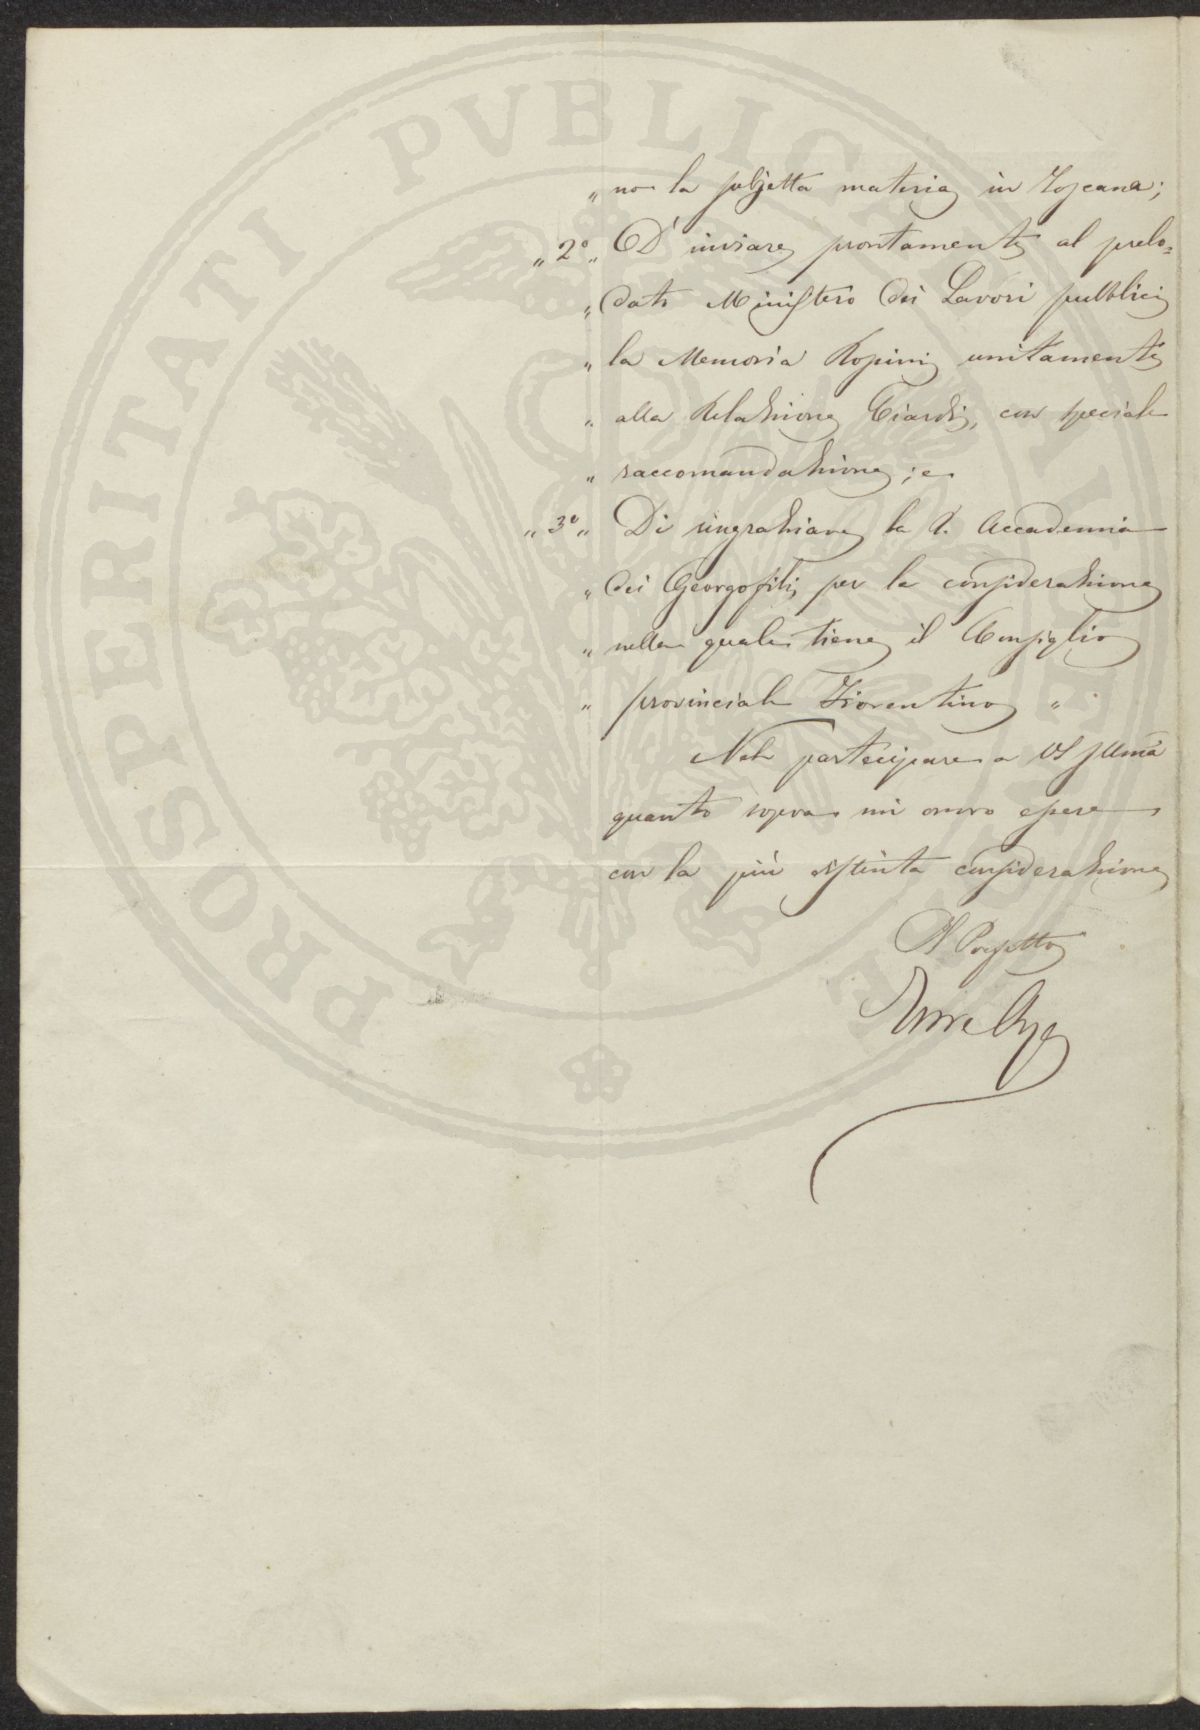 " no la subjetta materia in Toscana;
" 2° " D'inviare prontamente al prelo=
" dato Ministero dei Lavori pubblici
" la Memoria Rossini unitamente
" alla Relazione Ciardi, con speciale
" raccomandazione; e
" 3° " Di ringraziare la R. Accademia
" dei Georgofili, per la considerazione
" nella quale tiene il Consiglio
" provinciale Fiorentino "
Nel partecipare a VS Illma
quanto sopra mi onoro essere
con la più distinta considerazione
Il Prefetto
PROSPERITATI PVBLICAE